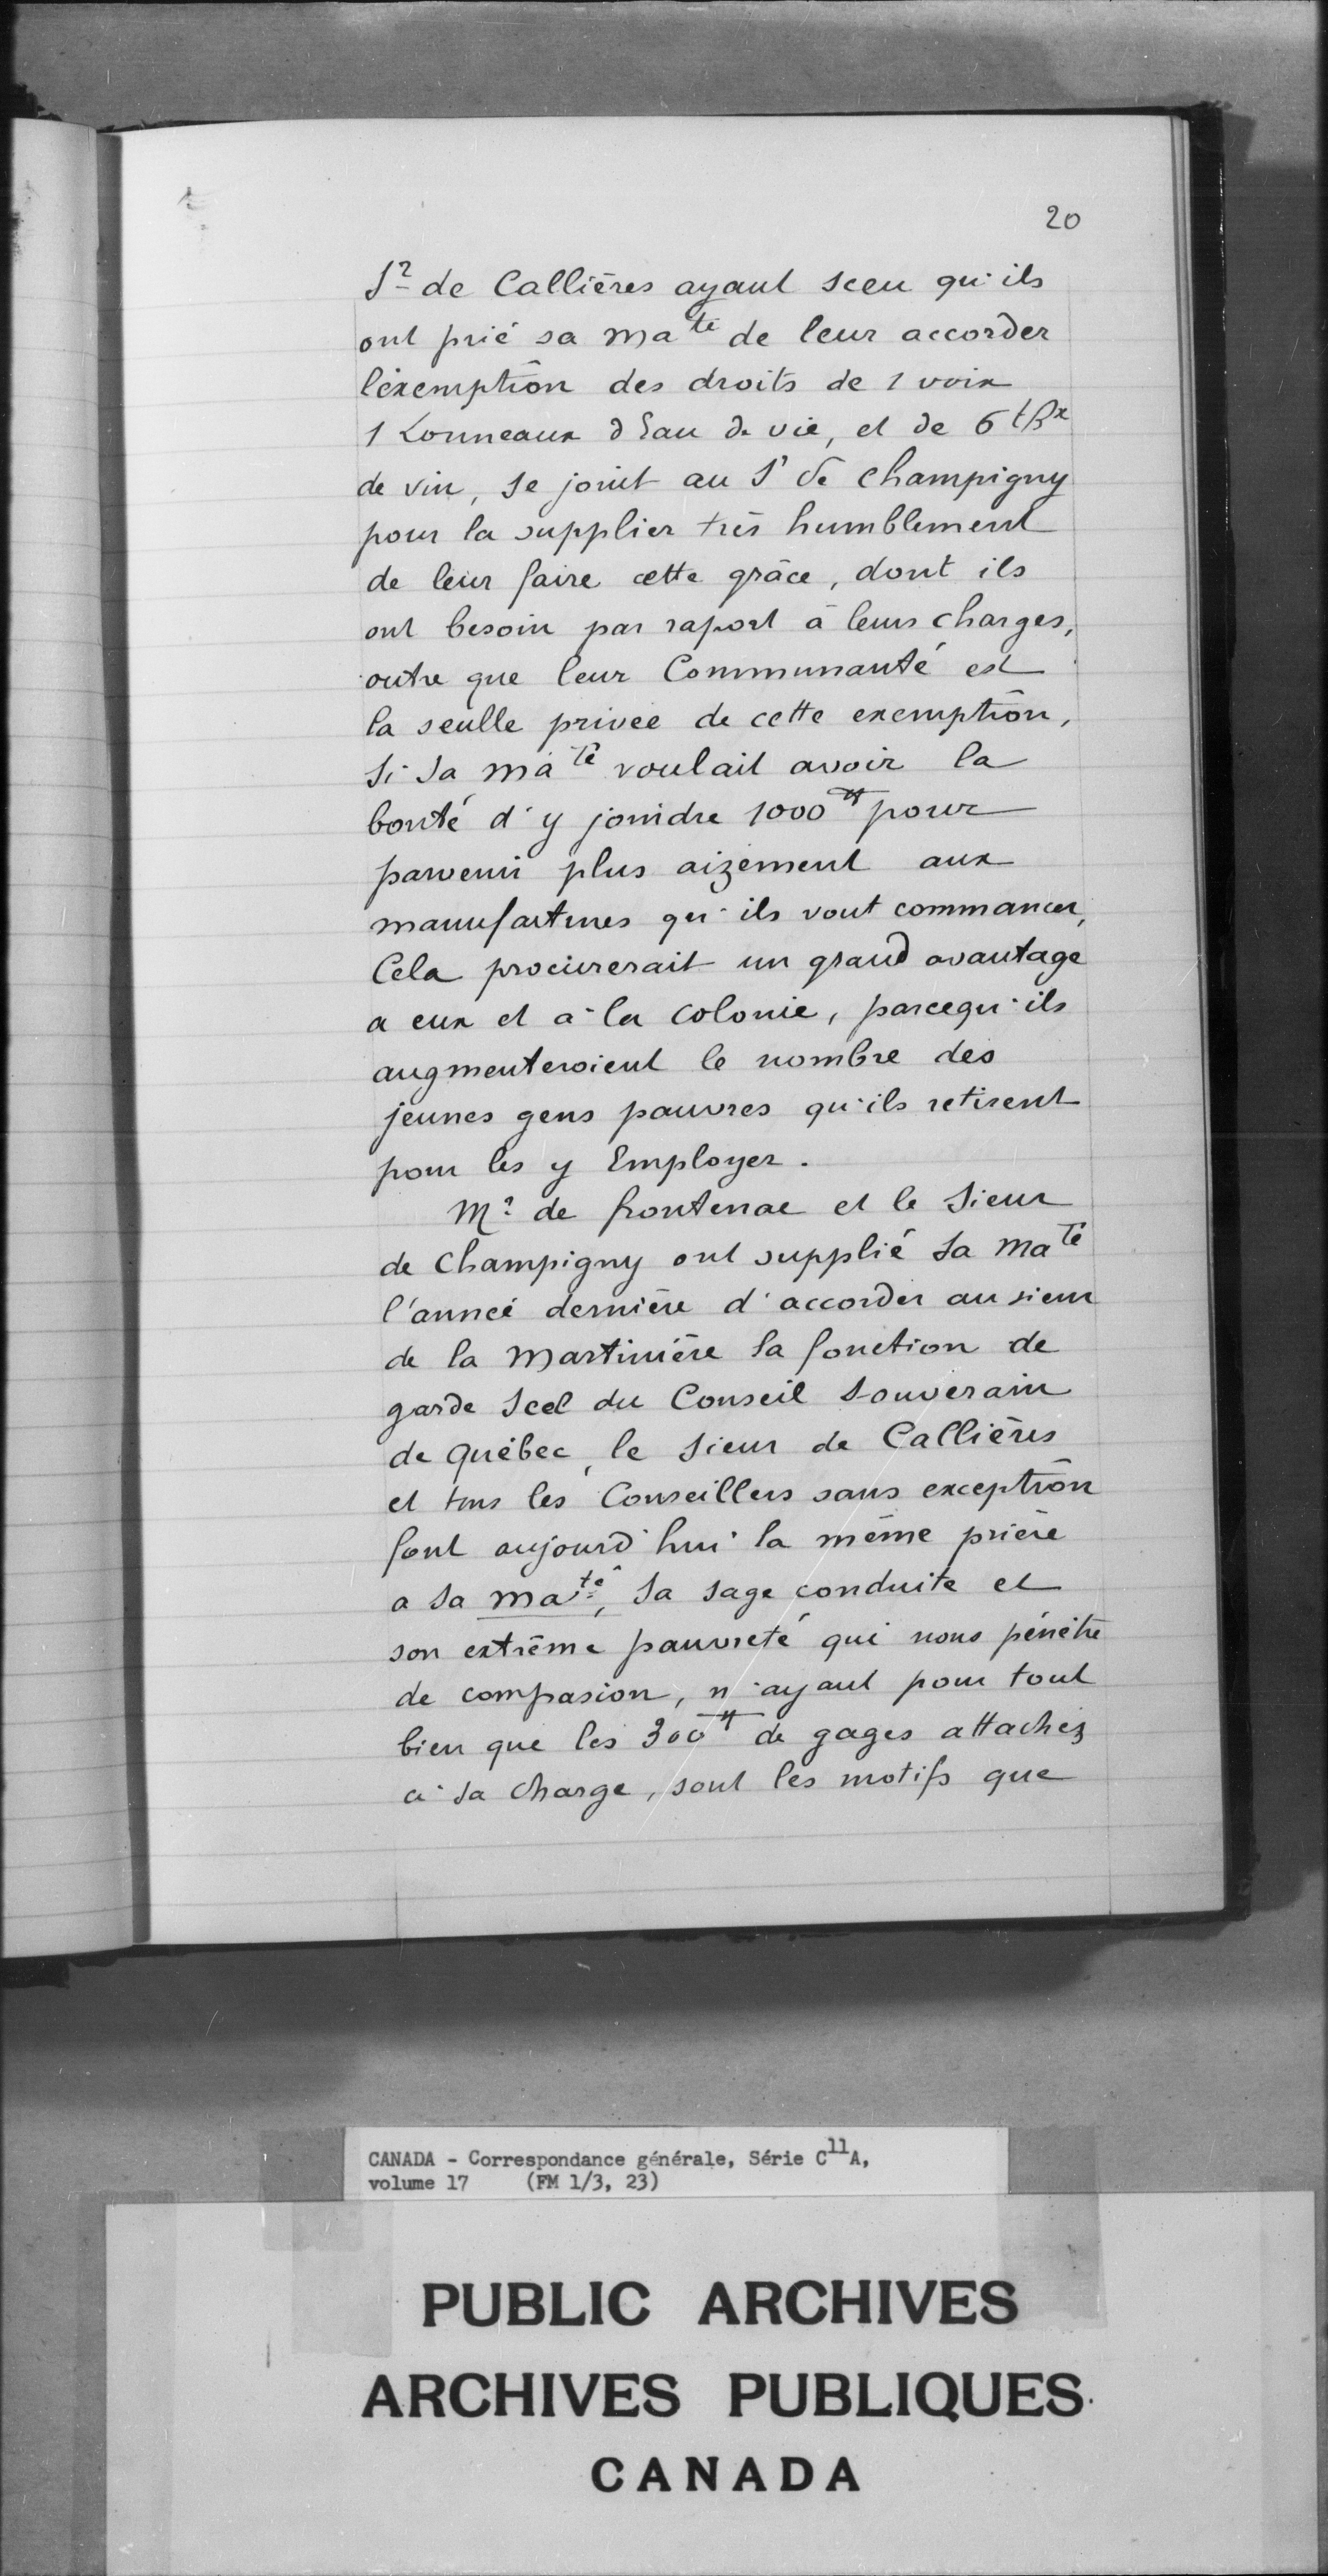 20
Sr de Callières ayant sceu qu'ils
ont prié sa Maté de leur accorder
léxemption des droits de 1 voix
1 Tonneaux d Eau de vie, et de 6
de vin, se joint au Sr de Champigny
pour la supplier très humblement
de leur faire cette grâce, dont ils
ont besoin par raport à leurs charges,
outre que leur Communauté est
la seulle privée de cette exemption,
Si Sa Maté voulait avoir la
bonté d'y joindre 1000# pour
parvenir plus aizement aux
manufactures qu'ils vont commancer,
Cela procurerait un grand avantage
a eux et a la colonie, parcequ'ils
augmenteroient le nombre des
jeunes gens pauvres qu'ils retirent
pour les y Employer.
Mr de frontenac et le Sieur
de Champigny ont supplié Sa Maté
l'anneé dernière d'accorder au sieur
de la Martinière la fonction de
garde Scel du Conseil Souverain
de Québec, le Sieur de Callières
et tous les Conseillers sans exception
font aujourd'hui la même prière
a Sa Maté, Sa sage conduite et
son extrême pauvreté qui nous pénètre
de compasion, n'ayant pour tout
bien que les 300# de gages attachez
a sa charge, sont les motifs que
CANADA - Correspondance générale, Série C11A,
volume 17 (FM 1/3, 23)
PUBLIC ARCHIVES
ARCHIVES PUBLIQUES
CANADA